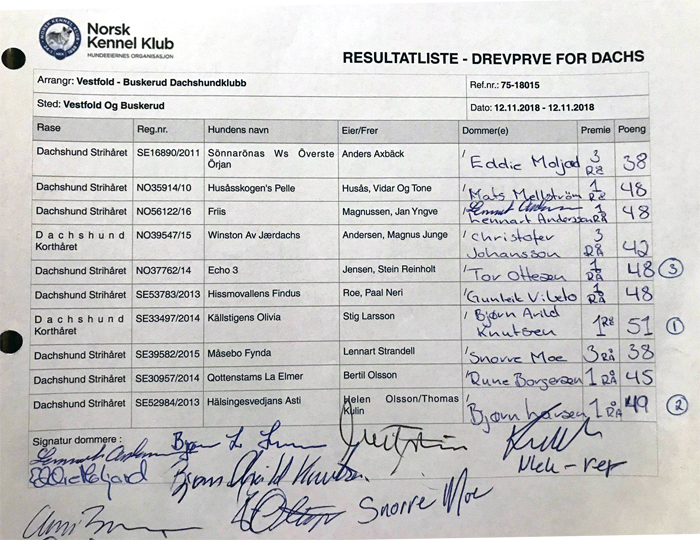 NORSK KENNEL KLUB
Norsk
Kennel Klub
HUNDEEIERNES ORGANISASJON
RESULTATLISTE - DREVPRVE FOR DACHS
Arrangr: Vestfold - Buskerud Dachshundklubb Ref.nr.: 75-18015
Sted: Vestfold Og Buskerud Dato: 12.11.2018 - 12.11.2018
Rase Reg.nr. Hundens navn Eier/Fører Dommer(e) Premie Poeng
Dachshund Strihåret SE16890/2011 Sönnarönas Ws Överste Anders Axbäck Eddie Moljord 3 38
Örjan RŘ
Dachshund Strihåret NO35914/10 Husåsskogen's Pelle Husås, Vidar Og Tone Mats Mellström 1 48
Dachshund Strihåret NO56122/16 Friis Magnussen, Jan Yngve Lennart Andersson 1 48
Dachshund NO39547/15 Winston Av Jærdachs Andersen, Magnus Junge Christofer 3 42
Korthåret Johansson
Dachshund Strihåret NO37762/14 Echo 3 Jensen, Stein Reinholt Tor Ottesen 1 RÅ 48 3
Dachshund Strihåret SE53783/2013 Hissmovallens Findus Roe, Paal Neri 1 RÅ 48
Dachshund SE33497/2014 Källstigens Olivia Stig Larsson Bjørn Arild 1 51 1
Korthåret Knutsen
Dachshund Strihåret SE39582/2015 Måsebo Fynda Lennart Strandell Snorre Moe 3 RÅ 38
Dachshund Strihåret SE30957/2014 Qottenstams La Elmer Bertil Olsson Rune Borgersen 1 RÅ 45
Dachshund Strihåret SE52984/2013 Hälsingesvedjans Asti Helen Olsson/Thomas Bjørn 1 RÅ 49 2
Kulin
Signatur dommere :
Lennart Andersson
Eddie Moljord Bjørn Arild Knutsen NKK-rep
Snorre Moe